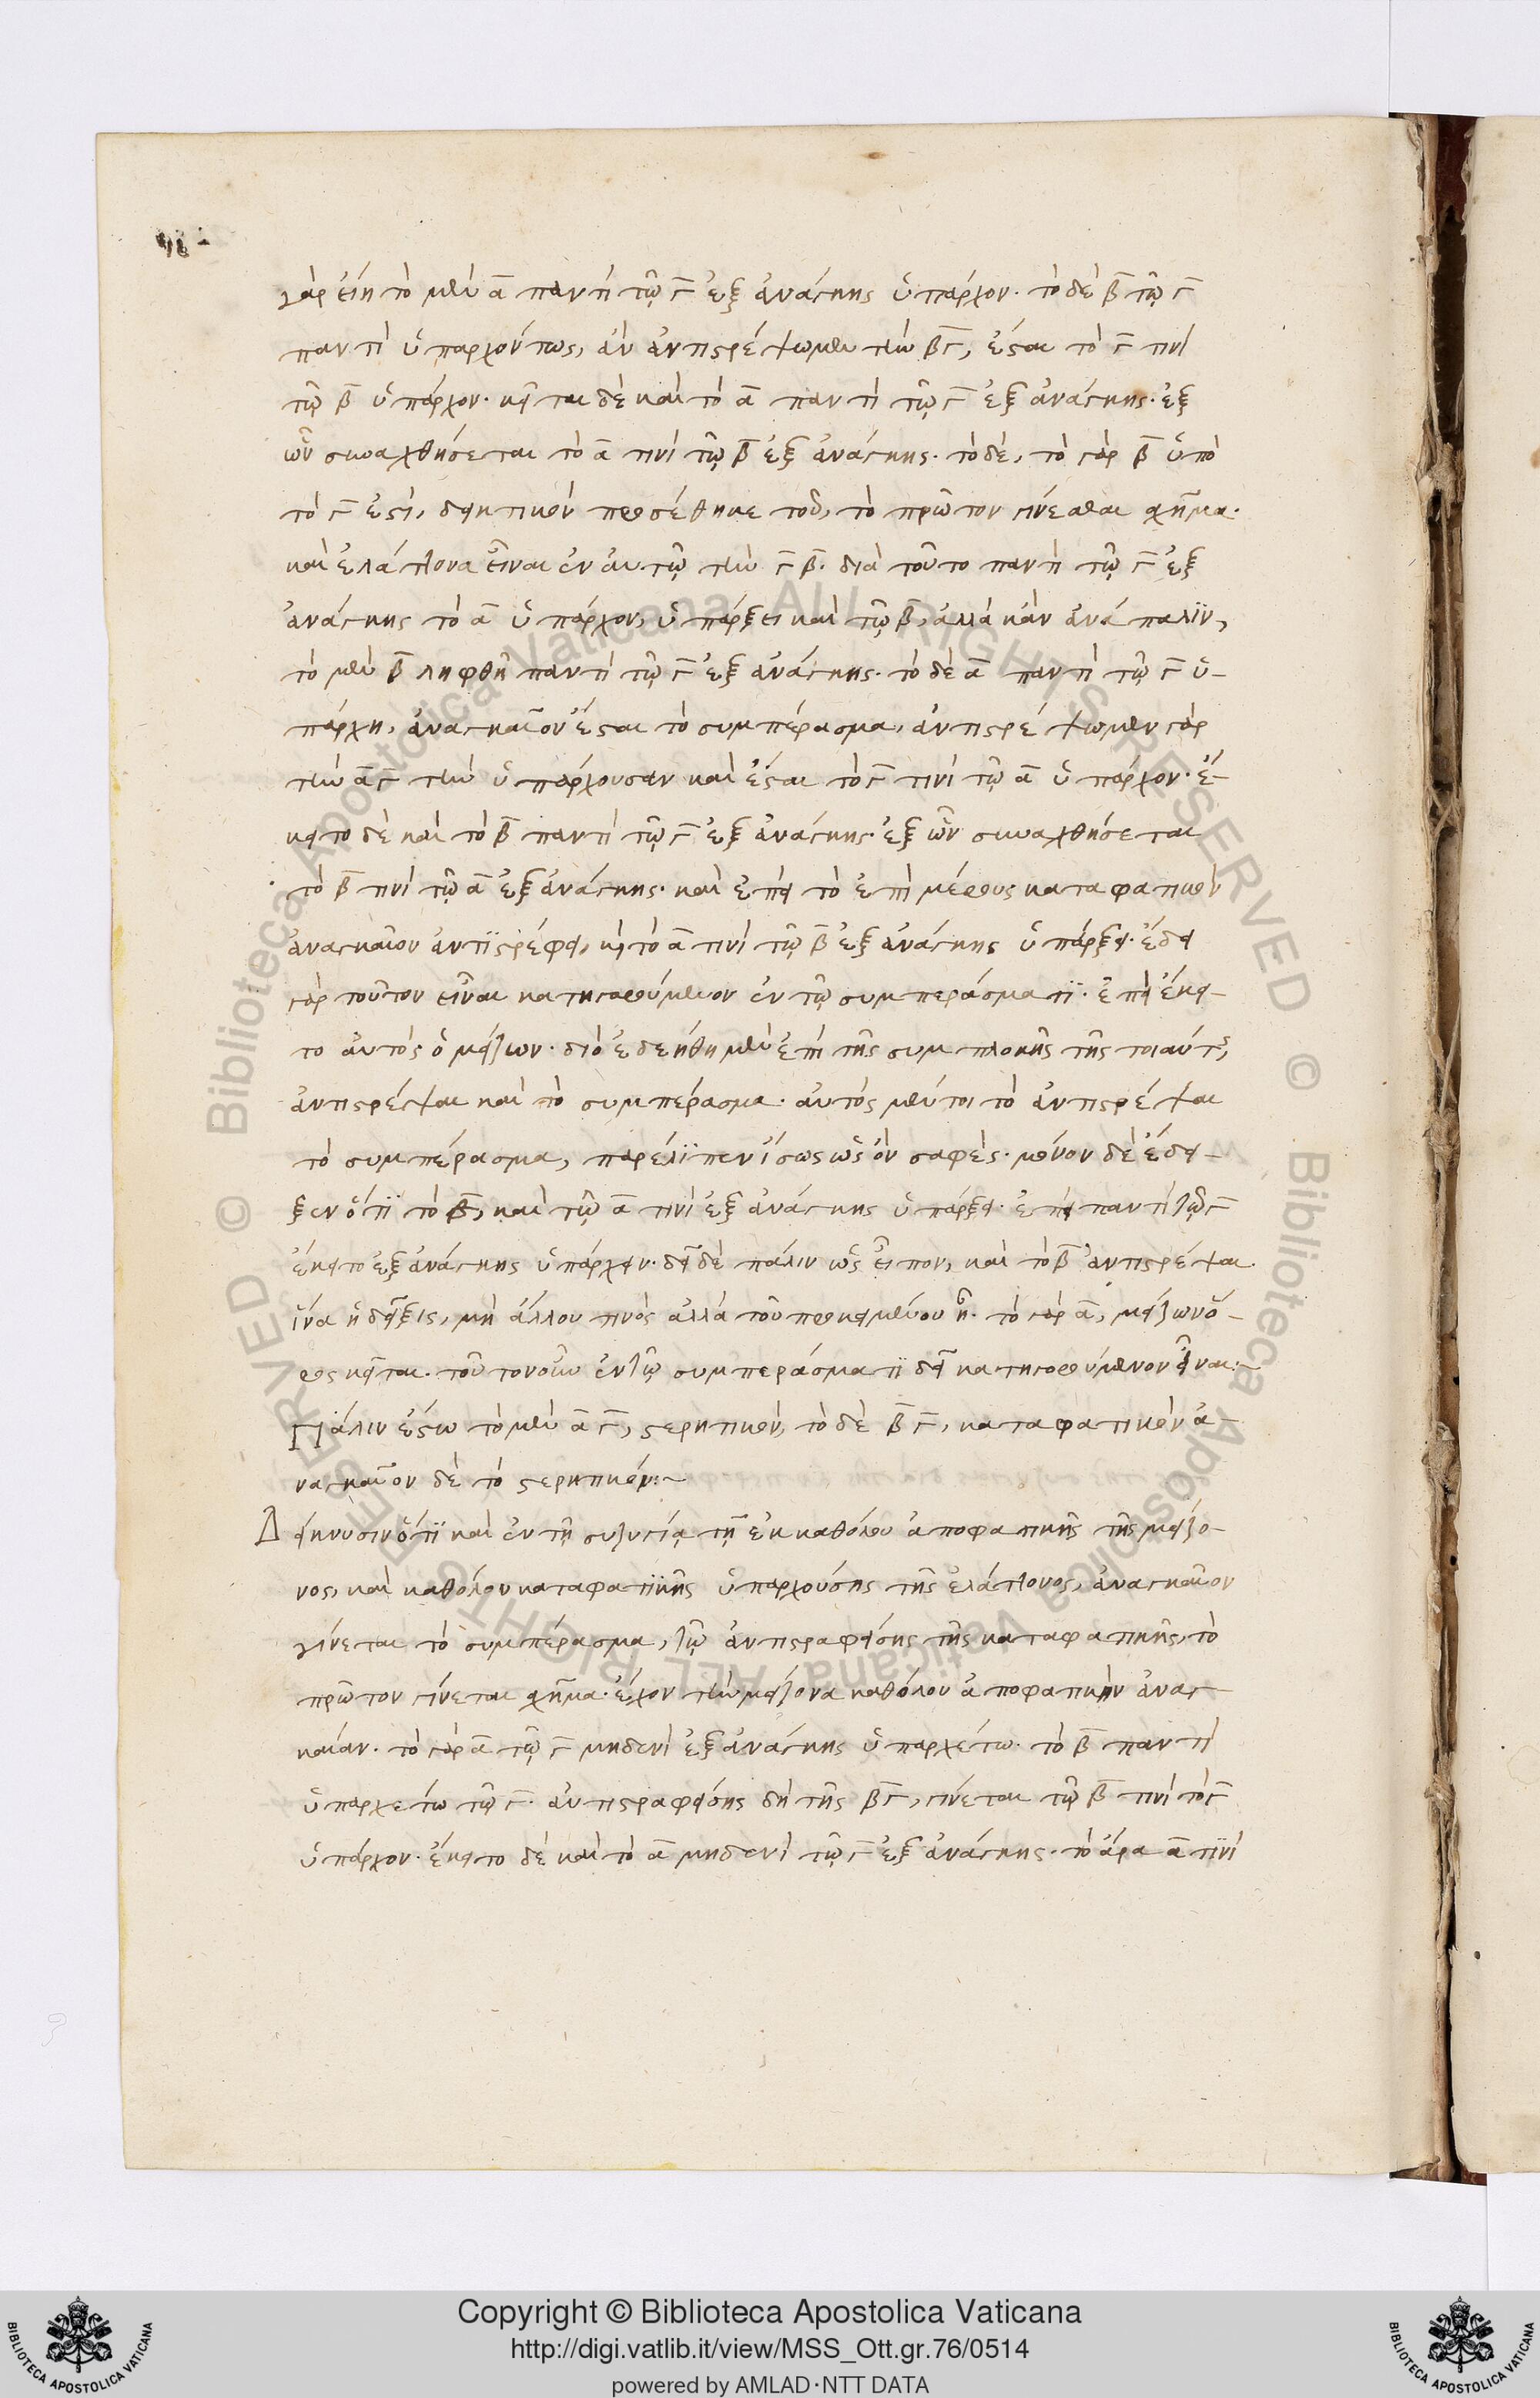 γὰρ εἴη τὸ μὲν α̅ παντὶ τῷ γ̅ ἐξ ἀνάγκης ὑπάρχον· τὸ δὲ β̅ τῷ γ̅
παντὶ ὑπαρχόντως, ἂν ἀντιστρέψωμεν τὴν β̅γ̅, ἔσται τὸ γ̅ τινὶ
τῷ β̅ ὑπάρχον· κεῖται δὲ καὶ τὸ α̅ παντὶ τῷ γ̅ ἐξ ἀνάγκης· ἐξ
ὧν συναχθήσεται τὸ α̅ τινὶ τῷ β̅ ἐξ ἀνάγκης· τὸ δὲ, τὸ γὰρ β̅ ὑπὸ
τὸ γ̅ ἐστὶ, δεικτικὸν προσέθηκε τοῦ, τὸ πρῶτον γίνεσθαι σχῆμα·
καὶ ἐλάττονα εἶναι ἐν αὐτῷ τὴν γ̅ β̅· διὰ τοῦτο παντὶ τῷ γ̅ ἐξ
ἀνάγκης τὸ α̅ ὑπάρχον, ὑπάρξει καὶ τῷ β̅, ἀλλὰ κἂν ἀνάπαλϊν,
τὸ μὲν β̅ ληφθῇ παντὶ τῷ γ̅ ἐξ ἀνάγκης· τὸ δὲ α̅ παντὶ τῷ γ̅ ὑ-
πάρχη, ἀναγκαῖον ἔσται τὸ συμπέρασμα, ἀντιστρέψωμεν γὰρ
τὴν α̅γ̅ τὴν ὑπάρχουσαν καὶ ἔσται τὸ γ̅ τινὶ τῷ α̅ ὑπάρχον· ἔ-
κειτο δὲ καὶ τὸ β̅ παντὶ τῷ γ̅ ἐξ ἀνάγκης· ἐξ ὧν συναχθήσεται
τὸ β̅ τινὶ τῷ α̅ ἐξ ἀνάγκης· καὶ ἐπεὶ τὸ ἐπὶ μέρους καταφατικὸν
ἀναγκαῖον ἀντϊστρέφει, κὶ τὸ α̅ τινὶ τῷ β̅ ἐξ ἀνάγκης ὑπάρξει· ἔδει
γὰρ τοῦτον εἶναι κατηγορούμενον ἐν τῷ συμπεράσματϊ· ἐπεὶ ἔκει-
το αὐτὸς ὁ μείζων· διὸ ἐδεήθη μὲν ἐπὶ τῆς συμπλοκῆς τῆς τοιαύτης,
ἀντιστρέψαι καὶ τὸ συμπέρασμα· αὐτὸς μέντοι τὸ ἀντιστρέψαι
τὸ συμπέρασμα, παρέλϊπεν ἴσως ὡς ὂν σαφές· μόνον δὲ ἔδει-
ξεν ὅτϊ τὸ β̅, καὶ τῷ α̅ τινὶ ἐξ ἀνάγκης ὑπάρξει· ἐπεὶ παντὶ τῷ γ̅
ἔκειτο ἐξ ἀνάγκης ὑπάρχειν· δεῖ δὲ πάλιν ὡς εἶπον, καὶ τὸ β̅ ἀντιστρέψαι·
ἵνα ἡ δεῖξις, μὴ ἄλλου τινὸς ἀλλὰ τοῦ προκειμένου ᾖ· τὸ γὰρ α̅, μείζων ὅ-
ρος κεῖται· τοῦτον οὖν ἐν τῷ συμπεράσματϊ δεῖ κατηγορούμενον εἶναι:~
Πάλιν ἔστω τὸ μὲν α̅ γ̅, στερητικὸν, τὸ δὲ β̅ γ̅, καταφατικὸν ἀ-
ναγκαῖον δὲ τὸ στερητικόν:~
Δείκνυσιν ὅτϊ καὶ ἐν τῇ συζυγίᾳ τῇ ἐκ καθόλου ἀποφατικῆς τῆς μείζο-
νος, καὶ καθόλου καταφατϊκῆς ὑπαρχούσης τῆς ἐλάττονος, ἀναγκαῖον
γίνεται τὸ συμπέρασμα, τῷ ἀντιστραφείσης τῆς καταφατικῆς, τὸ
πρῶτον γίνεται σχῆμα· ἔχον τὴν μείζονα καθόλου ἀποφατικὴν ἀναγ-
καίαν· τὸ γὰρ α̅ τῷ γ̅ μηδενὶ ἐξ ἀνάγκης ὑπαρχέτω· τὸ β̅ παντὶ
ὑπαρχέτω τῷ γ̅· ἀντιστραφείσης δὴ τῆς β̅γ̅, γίνεται τῷ β̅ τινὶ τὸ γ̅
ὑπάρχον· ἔκειτο δὲ καὶ τὸ α̅ μηδενὶ τῷ γ̅ ἐξ ἀνάγκης· τὸ ἄρα α̅ τινὶ
Copyright © Biblioteca Apostolica Vaticana
http://digi.vatlib.it/view/MSS_Ott.gr.76/0514
powered by AMLAD·NTT DATA